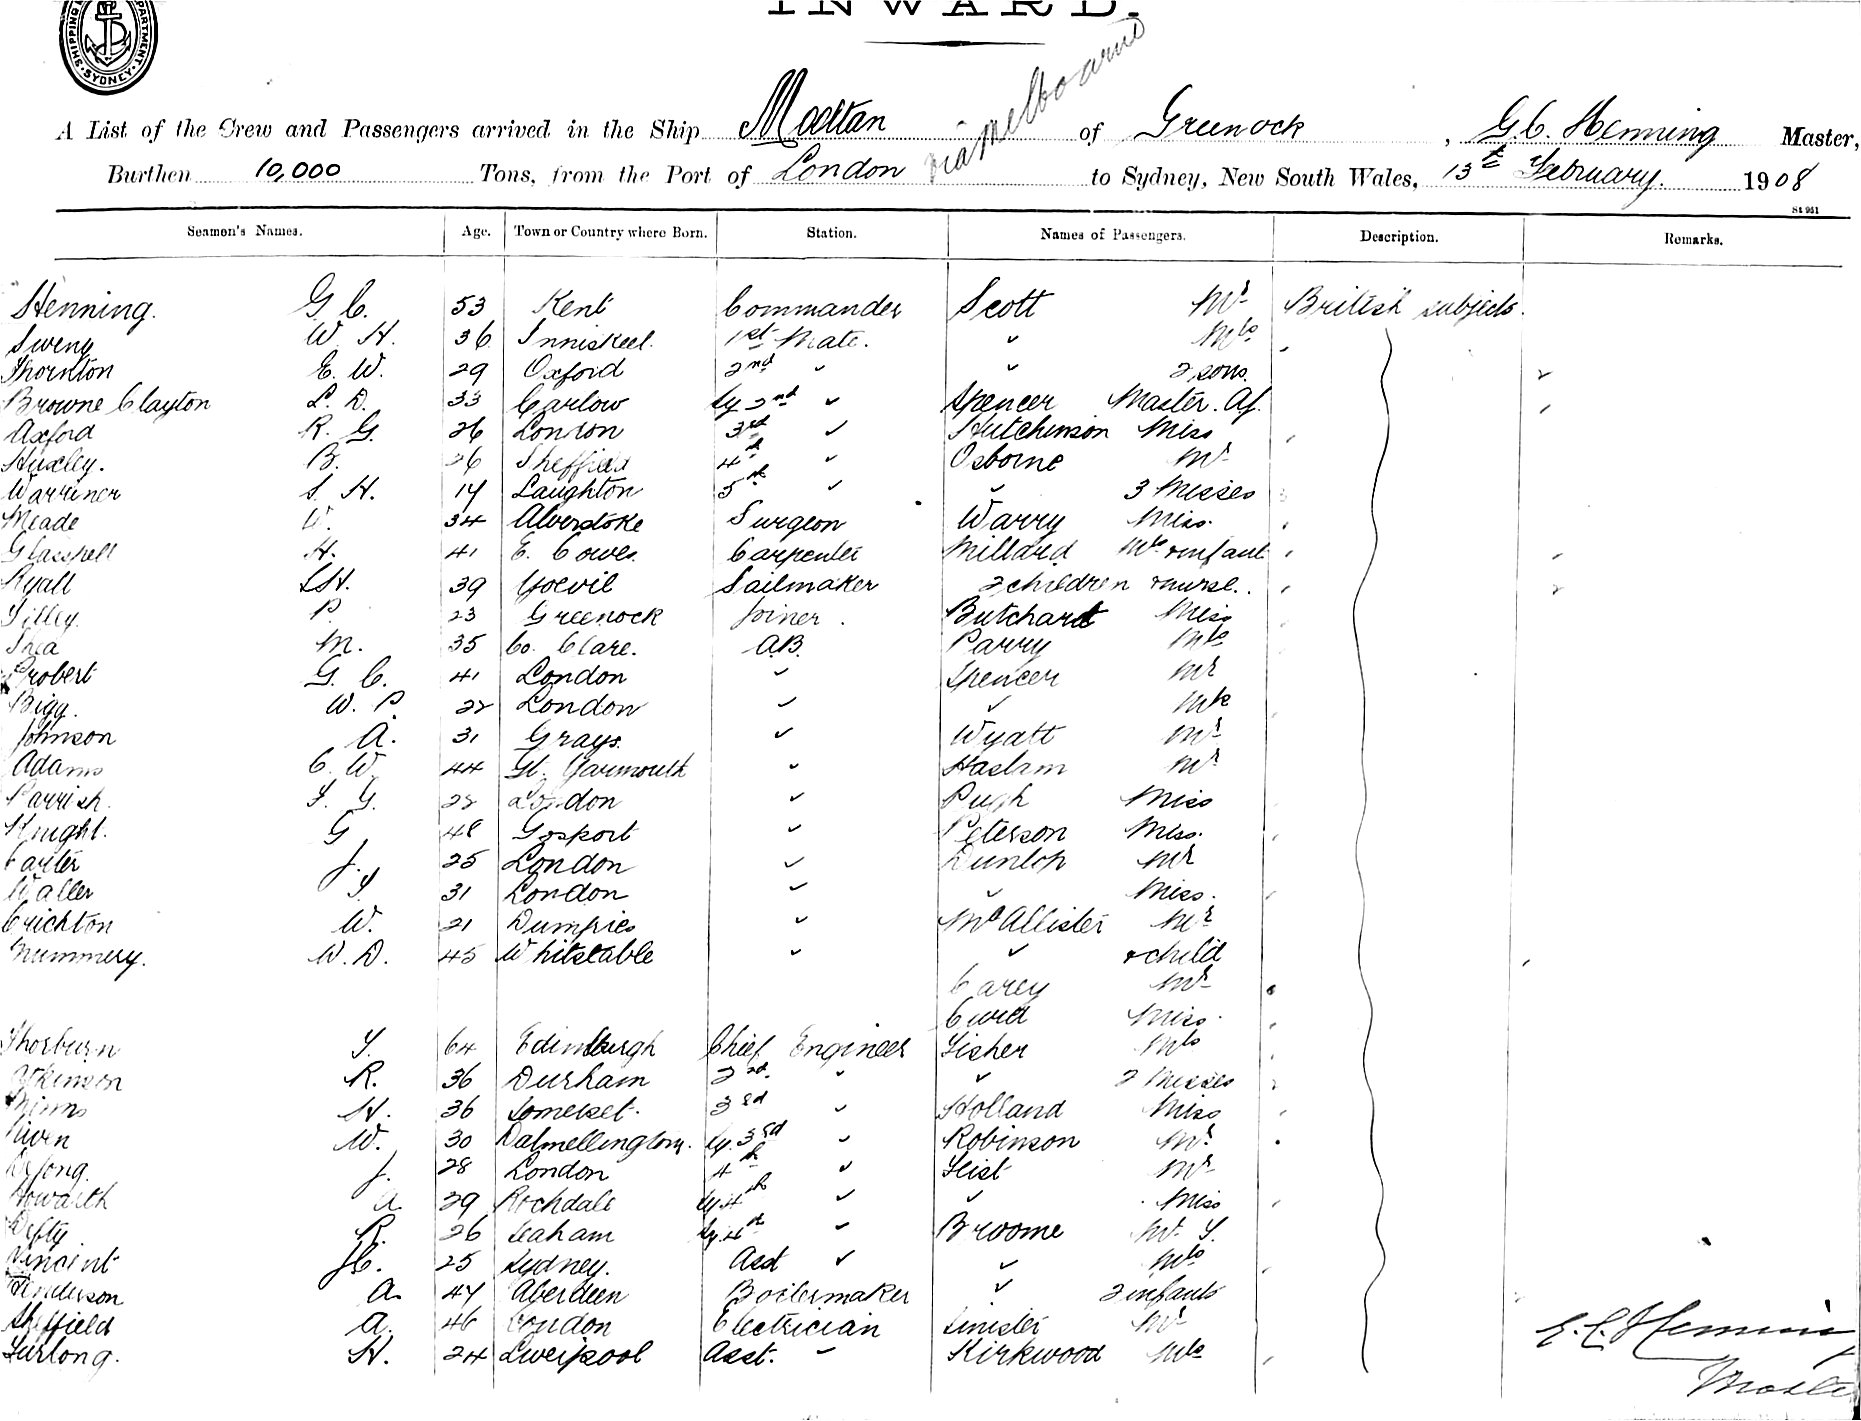 INWARD.
SHIPPING DEPARTMENT. SYDNEY
via Melbourne
A List of the Crew and Passengers arrived in the Ship Moltan of Greenock, G.C. Henning Master,
Burthen 10,000 Tons, from the Port of London to Sydney, New South Wales, 13th February. 1908
St 951
Seamen's Names. Age. Town or Country where Born. Station. Names of Passengers. Description. Remarks.
Henning. G. C. 53 Kent Commander Scott Mr British subjects.
Sweny W. H. 36 Inniskeel. 1st Mate. " Mrs
Thornton E. W. 29 Oxford 2nd " " 2 sons.
Browne Clayton L. D. 33 Carlow 2nd " Spencer Master. Af.
Axford R. G. 26 London 3rd " Hutchinson Miss
Huxley. B. 26 Sheffield 4th " Osborne Mr
Warriner S. H. 19 Laughton 5th " " 3 Misses
Meade W. 34 Alverstoke Surgeon Warry Miss.
Glasspell H. 41 E. Cowes. Carpenter Millard Mrs & infant
Ryall 39 Yoevil Sailmaker 2 children & nurse.
Tilley. P. 23 Greenock Joiner. Butchart Miss
Shea M. 35 Co. Clare. A.B. Parry Mrs
Probert G. C. 41 London " Spencer Mr
Bigg. W. P. 22 London " " Mrs
Johnson A. 31 Grays. " Wyatt Mr
Adams C. W. 44 Gt. Yarmouth " Haslam Mr
Parrish. 22 London " Pugh Miss
Knight. G 48 Gosport " Peterson Miss.
Carter J. 25 London " Dunlop Mr
Waller 31 London " " Miss.
Crichton W. 21 Dumfries " McAllister Mr
Nummery. W. D. 45 Whitstable " " & child
Carey Mr
Curd Miss.
Thorburn T. 64 Edinburgh Chief Engineer Fisher Mrs
Atkinson R. 36 Durham 2nd. " " 2 Misses
Mimms H. 36 Somerset. 3rd " Holland Miss
Niven W. 30 Dalmellington. 3rd " Robinson Mr.
DeJong. J. 28 London 4th " Feist Mr
Howarth A. 29 Rochdale 4th " " Miss
Defty R. 26 Seaham 4th " Broome Mr
Vincent 25 Sydney. Asst " " Mrs
Henderson A. 47 Aberdeen Boilermaker " 2 infants
Sheffield A. 46 London Electrician Sinister Mr
Furlong. H. 24 Liverpool Asst. " Kirkwood Mrs
G. C. Henning
Master